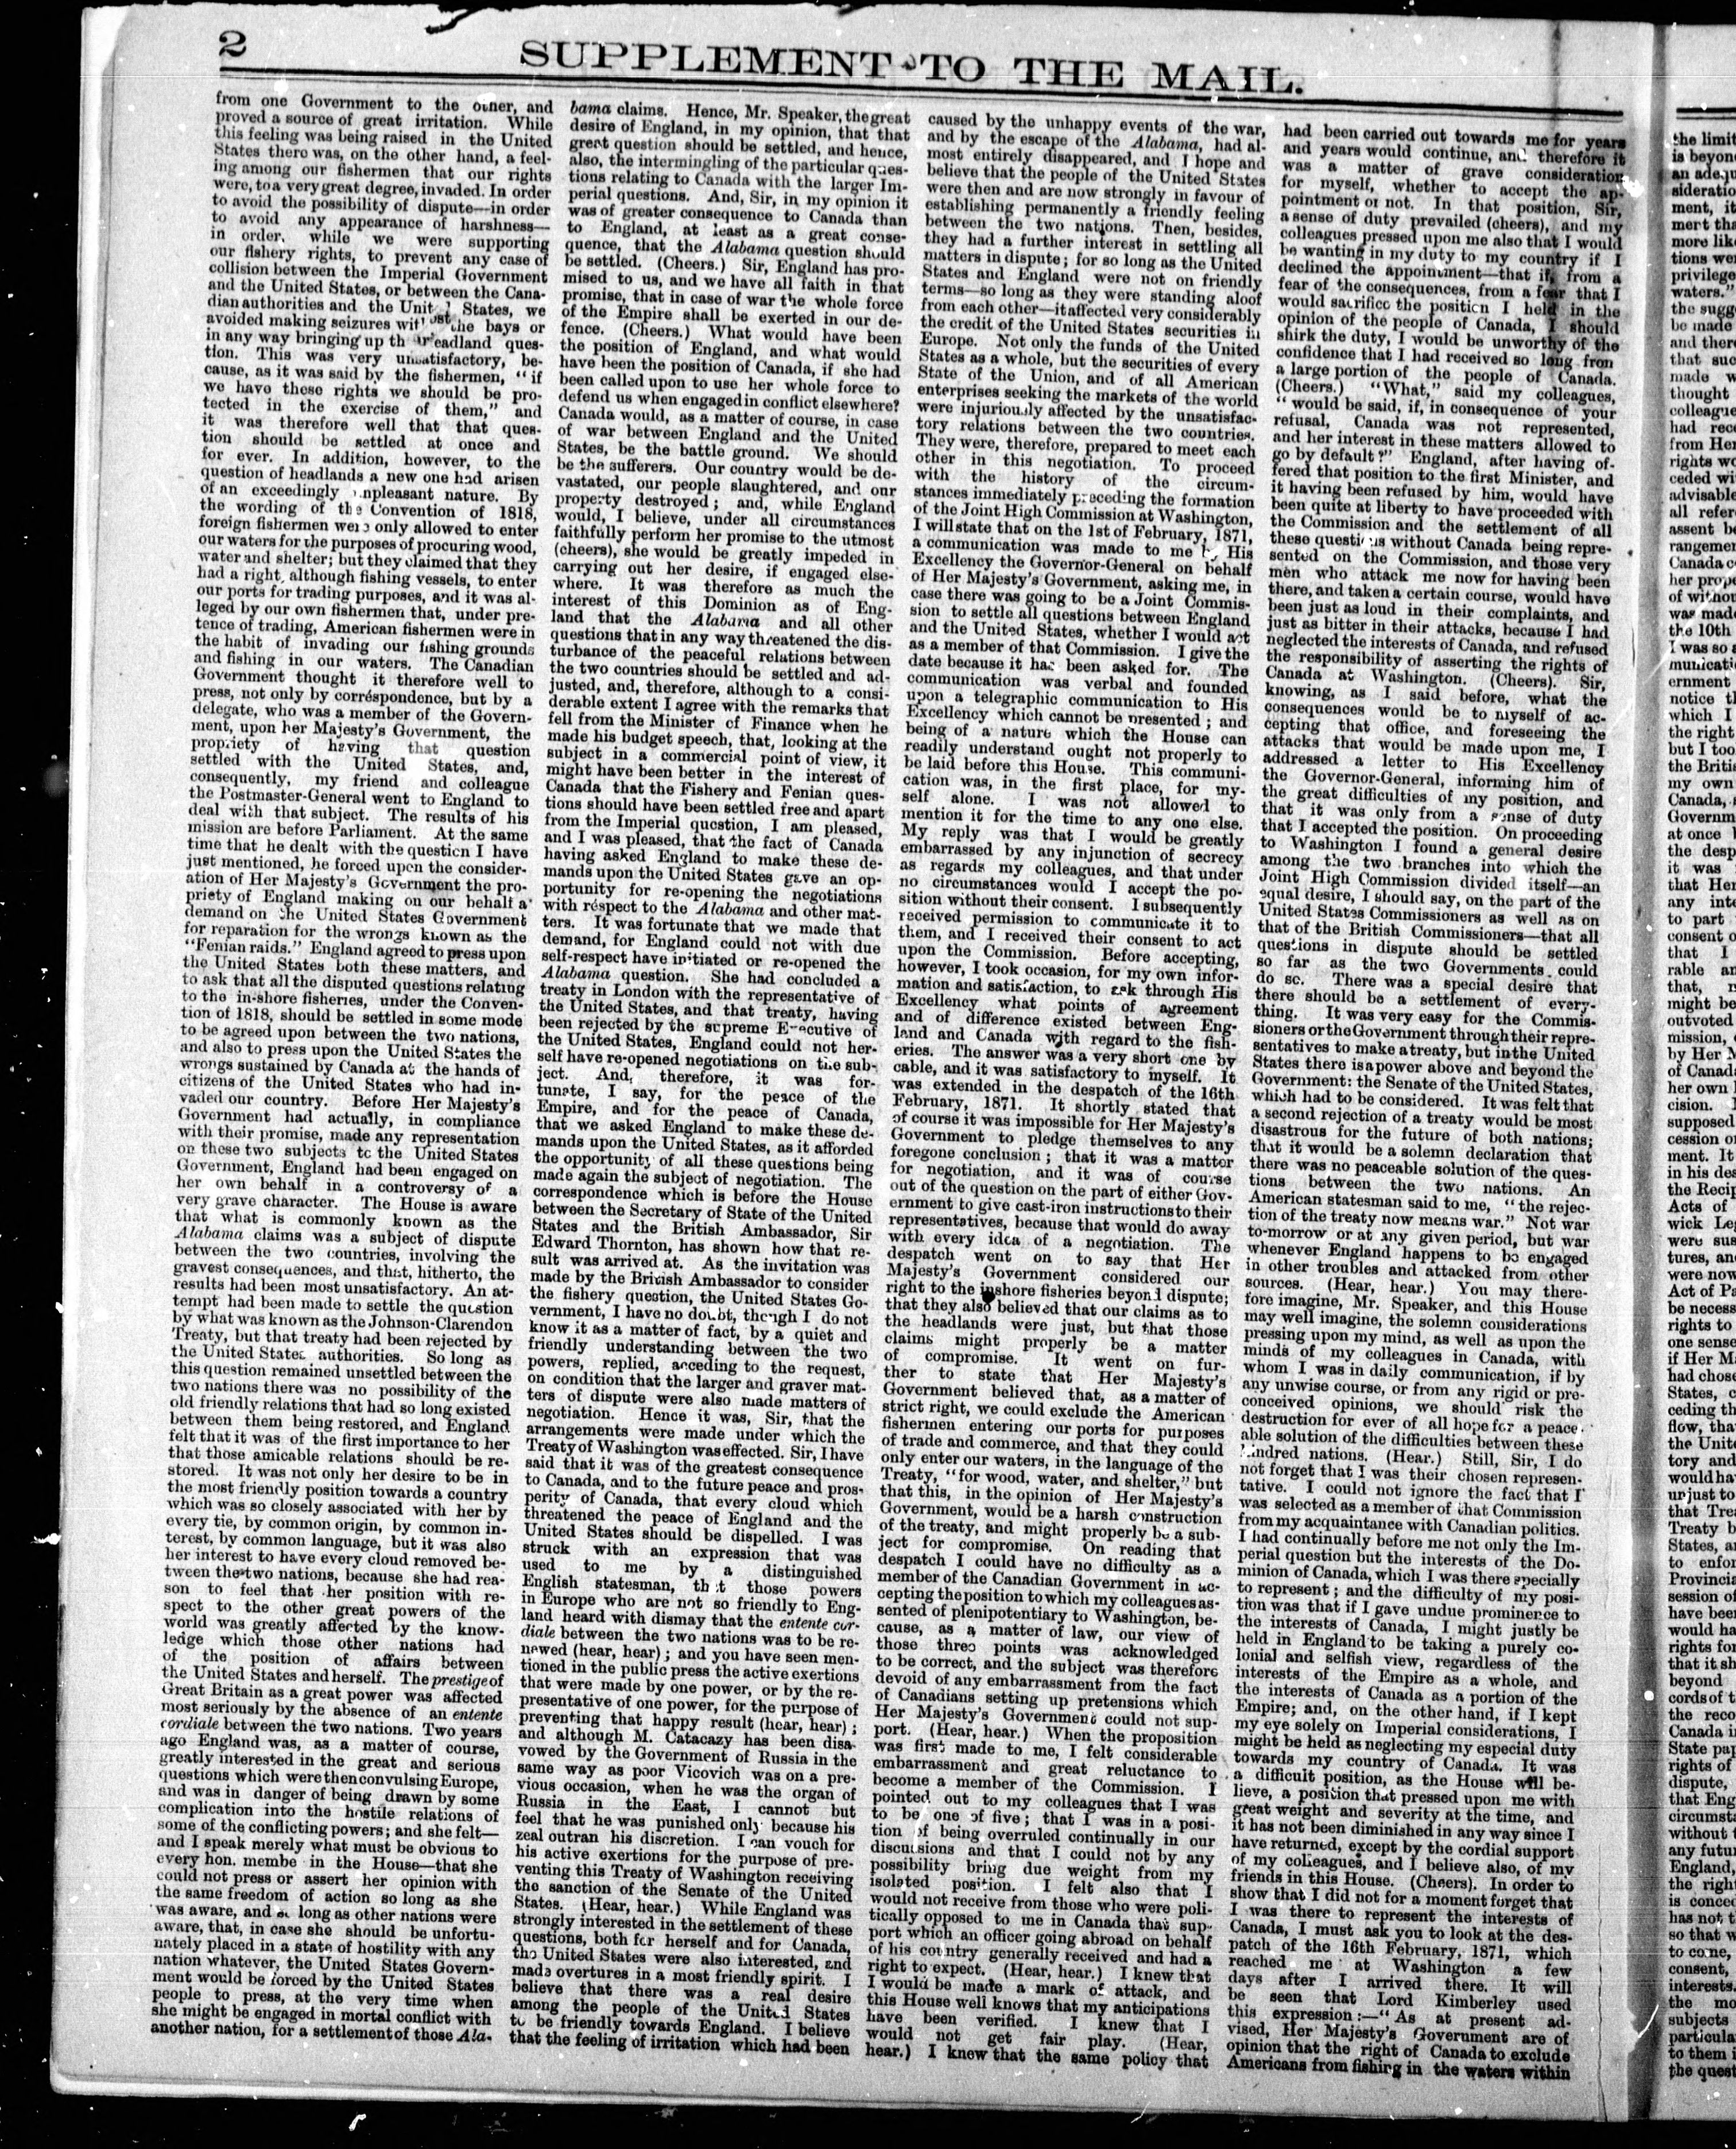 2
SUPPLEMENT TO THE MAIL.
from one Government to the other, and
proved a source of great irritation. While
this feeling was being raised in the United
States there was, on the other hand, a feel-
ing among our fishermen that our rights
were, to a very great degree, invaded. In order
to avoid the possibility of dispute—in order
to avoid any appearance of harshness—
in order, while we were supporting
our fishery rights, to prevent any case of
collision between the Imperial Government
and the United States, or between the Cana-
dian authorities and the United States, we
avoided making seizures within the bays or
in any way bringing up the headland ques-
tion. This was very unsatisfactory, be-
cause, as it was said by the fishermen, "if
we have these rights we should be pro-
tected in the exercise of them," and
it was therefore well that that ques-
tion should be settled at once and
for ever. In addition, however, to the
question of headlands a new one had arisen
of an exceedingly unpleasant nature. By
the wording of the Convention of 1818,
foreign fishermen were only allowed to enter
our waters for the purposes of procuring wood,
water and shelter; but they claimed that they
had a right, although fishing vessels, to enter
our ports for trading purposes, and it was al-
leged by our own fishermen that, under pre-
tence of trading, American fishermen were in
the habit of invading our fishing grounds
and fishing in our waters. The Canadian
Government thought it therefore well to
press, not only by correspondence, but by a
delegate, who was a member of the Govern-
ment, upon her Majesty's Government, the
propriety of having that question
settled with the United States, and,
consequently, my friend and colleague
the Postmaster-General went to England to
deal with that subject. The results of his
mission are before Parliament. At the same
time that he dealt with the question I have
just mentioned, he forced upon the consider-
ation of Her Majesty's Government the pro-
priety of England making on our behalf a
demand on the United States Government
for reparation for the wrongs known as the
"Fenian raids." England agreed to press upon
the United States both these matters, and
to ask that all the disputed questions relating
to the in-shore fisheries, under the Conven-
tion of 1818, should be settled in some mode
to be agreed upon between the two nations,
and also to press upon the United States the
wrongs sustained by Canada at the hands of
citizens of the United States who had in-
vaded our country. Before Her Majesty's
Government had actually, in compliance
with their promise, made any representation
on these two subjects to the United States
Government, England had been engaged on
her own behalf in a controversy of a
very grave character. The House is aware
that what is commonly known as the
Alabama claims was a subject of dispute
between the two countries, involving the
gravest consequences, and that, hitherto, the
results had been most unsatisfactory. An at-
tempt had been made to settle the question
by what was known as the Johnson-Clarendon
Treaty, but that treaty had been rejected by
the United States authorities. So long as
this question remained unsettled between the
two nations there was no possibility of the
old friendly relations that had so long existed
between them being restored, and England
felt that it was of the first importance to her
that those amicable relations should be re-
stored. It was not only her desire to be in
the most friendly position towards a country
which was so closely associated with her by
every tie, by common origin, by common in-
terest, by common language, but it was also
her interest to have every cloud removed be-
tween the two nations, because she had rea-
son to feel that her position with re-
spect to the other great powers of the
world was greatly affected by the know-
ledge which those other nations had
of the position of affairs between
the United States and herself. The prestige of
Great Britain as a great power was affected
most seriously by the absence of an entente
cordiale between the two nations. Two years
ago England was, as a matter of course,
greatly interested in the great and serious
questions which were then convulsing Europe,
and was in danger of being drawn by some
complication into the hostile relations of
some of the conflicting powers; and she felt—
and I speak merely what must be obvious to
every hon. membe in the House—that she
could not press or assert her opinion with
the same freedom of action so long as she
was aware, and as long as other nations were
aware, that, in case she should be unfortu-
nately placed in a state of hostility with any
nation whatever, the United States Govern-
ment would be forced by the United States
people to press, at the very time when
she might be engaged in mortal conflict with
another nation, for a settlement of those Ala-
bama claims. Hence, Mr. Speaker, the great
desire of England, in my opinion, that that
great question should be settled, and hence,
also, the intermingling of the particular ques-
tions relating to Canada with the larger Im-
perial questions. And, Sir, in my opinion it
was of greater consequence to Canada than
to England, at least as a great conse-
quence, that the Alabama question should
be settled. (Cheers.) Sir, England has pro-
mised to us, and we have all faith in that
promise, that in case of war the whole force
of the Empire shall be exerted in our de-
fence. (Cheers.) What would have been
the position of England, and what would
have been the position of Canada, if she had
been called upon to use her whole force to
defend us when engaged in conflict elsewhere?
Canada would, as a matter of course, in case
of war between England and the United
States, be the battle ground. We should
be the sufferers. Our country would be de-
vastated, our people slaughtered, and our
property destroyed; and, while England
would, I believe, under all circumstances
faithfully perform her promise to the utmost
(cheers), she would be greatly impeded in
carrying out her desire, if engaged else-
where. It was therefore as much the
interest of this Dominion as of Eng-
land that the Alabama and all other
questions that in any way threatened the dis-
turbance of the peaceful relations between
the two countries should be settled and ad-
justed, and, therefore, although to a consi-
derable extent I agree with the remarks that
fell from the Minister of Finance when he
made his budget speech, that, looking at the
subject in a commercial point of view, it
might have been better in the interest of
Canada that the Fishery and Fenian ques-
tions should have been settled free and apart
from the Imperial question, I am pleased,
and I was pleased, that the fact of Canada
having asked England to make these de-
mands upon the United States gave an op-
portunity for re-opening the negotiations
with respect to the Alabama and other mat-
ters. It was fortunate that we made that
demand, for England could not with due
self-respect have initiated or re-opened the
Alabama question. She had concluded a
treaty in London with the representative of
the United States, and that treaty, having
been rejected by the supreme Executive of
the United States, England could not her-
self have re-opened negotiations on the sub-
ject. And, therefore, it was for-
tunate, I say, for the peace of the
Empire, and for the peace of Canada,
that we asked England to make these de-
mands upon the United States, as it afforded
the opportunity of all these questions being
made again the subject of negotiation. The
correspondence which is before the House
between the Secretary of State of the United
States and the British Ambassador, Sir
Edward Thornton, has shown how that re-
sult was arrived at. As the invitation was
made by the British Ambassador to consider
the fishery question, the United States Go-
vernment, I have no doubt, though I do not
know it as a matter of fact, by a quiet and
friendly understanding between the two
powers, replied, acceding to the request,
on condition that the larger and graver mat-
ters of dispute were also made matters of
negotiation. Hence it was, Sir, that the
arrangements were made under which the
Treaty of Washington was effected. Sir, I have
said that it was of the greatest consequence
to Canada, and to the future peace and pros-
perity of Canada, that every cloud which
threatened the peace of England and the
United States should be dispelled. I was
struck with an expression that was
used to me by a distinguished
English statesman, that those powers
in Europe who are not so friendly to Eng-
land heard with dismay that the entente cor-
diale between the two nations was to be re-
newed (hear, hear); and you have seen men-
tioned in the public press the active exertions
that were made by one power, or by the re-
presentative of one power, for the purpose of
preventing that happy result (hear, hear);
and although M. Catacazy has been disa-
vowed by the Government of Russia in the
same way as poor Vicovich was on a pre-
vious occasion, when he was the organ of
Russia in the East, I cannot but
feel that he was punished only because his
zeal outran his discretion. I can vouch for
his active exertions for the purpose of pre-
venting this Treaty of Washington receiving
the sanction of the Senate of the United
States. (Hear, hear.) While England was
strongly interested in the settlement of these
questions, both for herself and for Canada,
the United States were also interested, and
made overtures in a most friendly spirit. I
believe that there was a real desire
among the people of the United States
to be friendly towards England. I believe
that the feeling of irritation which had been
caused by the unhappy events of the war,
and by the escape of the Alabama, had al-
most entirely disappeared, and I hope and
believe that the people of the United States
were then and are now strongly in favour of
establishing permanently a friendly feeling
between the two nations. Then, besides,
they had a further interest in settling all
matters in dispute; for so long as the United
States and England were not on friendly
terms—so long as they were standing aloof
from each other—it affected very considerably
the credit of the United States securities in
Europe. Not only the funds of the United
States as a whole, but the securities of every
State of the Union, and of all American
enterprises seeking the markets of the world
were injuriously affected by the unsatisfac-
tory relations between the two countries.
They were, therefore, prepared to meet each
other in this negotiation. To proceed
with the history of the circum-
stances immediately preceding the formation
of the Joint High Commission at Washington,
I will state that on the 1st of February, 1871,
a communication was made to me by His
Excellency the Governor-General on behalf
of Her Majesty's Government, asking me, in
case there was going to be a Joint Commis-
sion to settle all questions between England
and the United States, whether I would act
as a member of that Commission. I give the
date because it has been asked for. The
communication was verbal and founded
upon a telegraphic communication to His
Excellency which cannot be presented; and
being of a nature which the House can
readily understand ought not properly to
be laid before this House. This communi-
cation was, in the first place, for my-
self alone. I was not allowed to
mention it for the time to any one else.
My reply was that I would be greatly
embarrassed by any injunction of secrecy
as regards my colleagues, and that under
no circumstances would I accept the po-
sition without their consent. I subsequently
received permission to communicate it to
them, and I received their consent to act
upon the Commission. Before accepting,
however, I took occasion, for my own infor-
mation and satisfaction, to ask through His
Excellency what points of agreement
and of difference existed between Eng-
land and Canada with regard to the fish-
eries. The answer was a very short one by
cable, and it was satisfactory to myself. It
was extended in the despatch of the 16th
February, 1871. It shortly stated that
of course it was impossible for Her Majesty's
Government to pledge themselves to any
foregone conclusion; that it was a matter
for negotiation, and it was of course
out of the question on the part of either Gov-
ernment to give cast-iron instructions to their
representatives, because that would do away
with every idea of a negotiation. The
despatch went on to say that Her
Majesty's Government considered our
right to the inshore fisheries beyond dispute;
that they also believed that our claims as to
the headlands were just, but that those
claims might properly be a matter
of compromise. It went on fur-
ther to state that Her Majesty's
Government believed that, as a matter of
strict right, we could exclude the American
fishermen entering our ports for purposes
of trade and commerce, and that they could
only enter our waters, in the language of the
Treaty, "for wood, water, and shelter," but
that this, in the opinion of Her Majesty's
Government, would be a harsh construction
of the treaty, and might properly be a sub-
ject for compromise. On reading that
despatch I could have no difficulty as a
member of the Canadian Government in ac-
cepting the position to which my colleagues as-
sented of plenipotentiary to Washington, be-
cause, as a matter of law, our view of
those three points was acknowledged
to be correct, and the subject was therefore
devoid of any embarrassment from the fact
of Canadians setting up pretensions which
Her Majesty's Government could not sup-
port. (Hear, hear.) When the proposition
was first made to me, I felt considerable
embarrassment and great reluctance to
become a member of the Commission. I
pointed out to my colleagues that I was
to be one of five; that I was in a posi-
tion of being overruled continually in our
discussions and that I could not by any
possibility bring due weight from my
isolated position. I felt also that I
would not receive from those who were poli-
tically opposed to me in Canada that sup-
port which an officer going abroad on behalf
of his country generally received and had a
right to expect. (Hear, hear.) I knew that
I would be made a mark of attack, and
this House well knows that my anticipations
have been verified. I knew that I
would not get fair play. (Hear,
hear.) I knew that the same policy that
had been carried out towards me for years
and years would continue, and therefore it
was a matter of grave consideration
for myself, whether to accept the ap-
pointment or not. In that position, Sir,
a sense of duty prevailed (cheers), and my
colleagues pressed upon me also that I would
be wanting in my duty to my country if I
declined the appointment—that if, from a
fear of the consequences, from a fear that I
would sacrifice the position I held in the
opinion of the people of Canada, I should
shirk the duty, I would be unworthy of the
confidence that I had received so long from
a large portion of the people of Canada.
(Cheers.) "What," said my colleagues,
"would be said, if, in consequence of your
refusal, Canada was not represented,
and her interest in these matters allowed to
go by default?" England, after having of-
fered that position to the first Minister, and
it having been refused by him, would have
been quite at liberty to have proceeded with
the Commission and the settlement of all
these questions without Canada being repre-
sented on the Commission, and those very
men who attack me now for having been
there, and taken a certain course, would have
been just as loud in their complaints, and
just as bitter in their attacks, because I had
neglected the interests of Canada, and refused
the responsibility of asserting the rights of
Canada at Washington. (Cheers). Sir,
knowing, as I said before, what the
consequences would be to myself of ac-
cepting that office, and foreseeing the
attacks that would be made upon me, I
addressed a letter to His Excellency
the Governor-General, informing him of
the great difficulties of my position, and
that it was only from a sense of duty
that I accepted the position. On proceeding
to Washington I found a general desire
among the two branches into which the
Joint High Commission divided itself—an
equal desire, I should say, on the part of the
United States Commissioners as well as on
that of the British Commissioners—that all
questions in dispute should be settled
so far as the two Governments could
do so. There was a special desire that
there should be a settlement of every-
thing. It was very easy for the Commis-
sioners or the Government through their repre-
sentatives to make a treaty, but in the United
States there is a power above and beyond the
Government: the Senate of the United States,
which had to be considered. It was felt that
a second rejection of a treaty would be most
disastrous for the future of both nations;
that it would be a solemn declaration that
there was no peaceable solution of the ques-
tions between the two nations. An
American statesman said to me, "the rejec-
tion of the treaty now means war." Not war
to-morrow or at any given period, but war
whenever England happens to be engaged
in other troubles and attacked from other
sources. (Hear, hear.) You may there-
fore imagine, Mr. Speaker, and this House
may well imagine, the solemn considerations
pressing upon my mind, as well as upon the
minds of my colleagues in Canada, with
whom I was in daily communication, if by
any unwise course, or from any rigid or pre-
conceived opinions, we should risk the
destruction for ever of all hope for a peace-
able solution of the difficulties between these
kindred nations. (Hear.) Still, Sir, I do
not forget that I was their chosen represen-
tative. I could not ignore the fact that I
was selected as a member of that Commission
from my acquaintance with Canadian politics.
I had continually before me not only the Im-
perial question but the interests of the Do-
minion of Canada, which I was there specially
to represent; and the difficulty of my posi-
tion was that if I gave undue prominence to
the interests of Canada, I might justly be
held in England to be taking a purely co-
lonial and selfish view, regardless of the
interests of the Empire as a whole, and
the interests of Canada as a portion of the
Empire; and, on the other hand, if I kept
my eye solely on Imperial considerations, I
might be held as neglecting my especial duty
towards my country of Canada. It was
a difficult position, as the House will be-
lieve, a position that pressed upon me with
great weight and severity at the time, and
it has not been diminished in any way since I
have returned, except by the cordial support
of my colleagues, and I believe also, of my
friends in this House. (Cheers). In order to
show that I did not for a moment forget that
I was there to represent the interests of
Canada, I must ask you to look at the des-
patch of the 16th February, 1871, which
reached me at Washington a few
days after I arrived there. It will
be seen that Lord Kimberley used
this expression:—"As at present ad-
vised, Her Majesty's Government are of
opinion that the right of Canada to exclude
Americans from fishing in the waters within